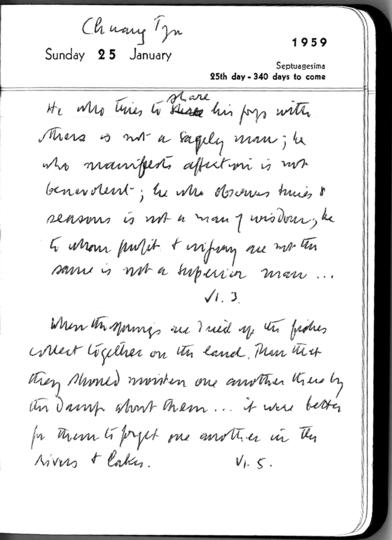 Chuang Tzu
1959
Sunday 25 January
Septuagesima
25th day - 340 days to come
share
He who tries to his joys with
others is not a sagely man; he
who manifests affection is not
benevolent; he who observes times &
seasons is not a man of wisdom; he
to whom profit & injury are not the
same is not a superior man ...
VI. 3.
When the springs are dried up the fishes
collect together on the land. Than that
they should moisten one another there by
the damp about them ... it were better
for them to forget one another in the
rivers & lakes. VI. 5.